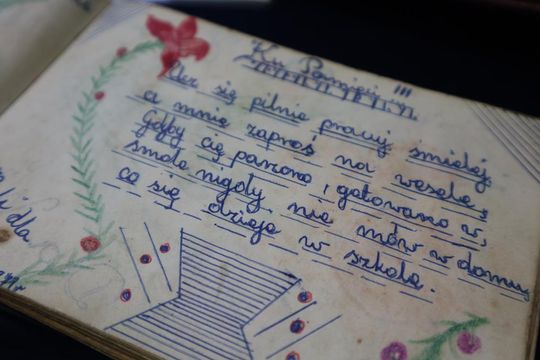 Ku Pamięci !!!
Ucz się pilnie pracuj śmielej
a mnie zaproś na wesele,
Gdyby cię parzono, gotowano w
smole nigdy nie mów w domu
co się dzieje w szkole.
dla